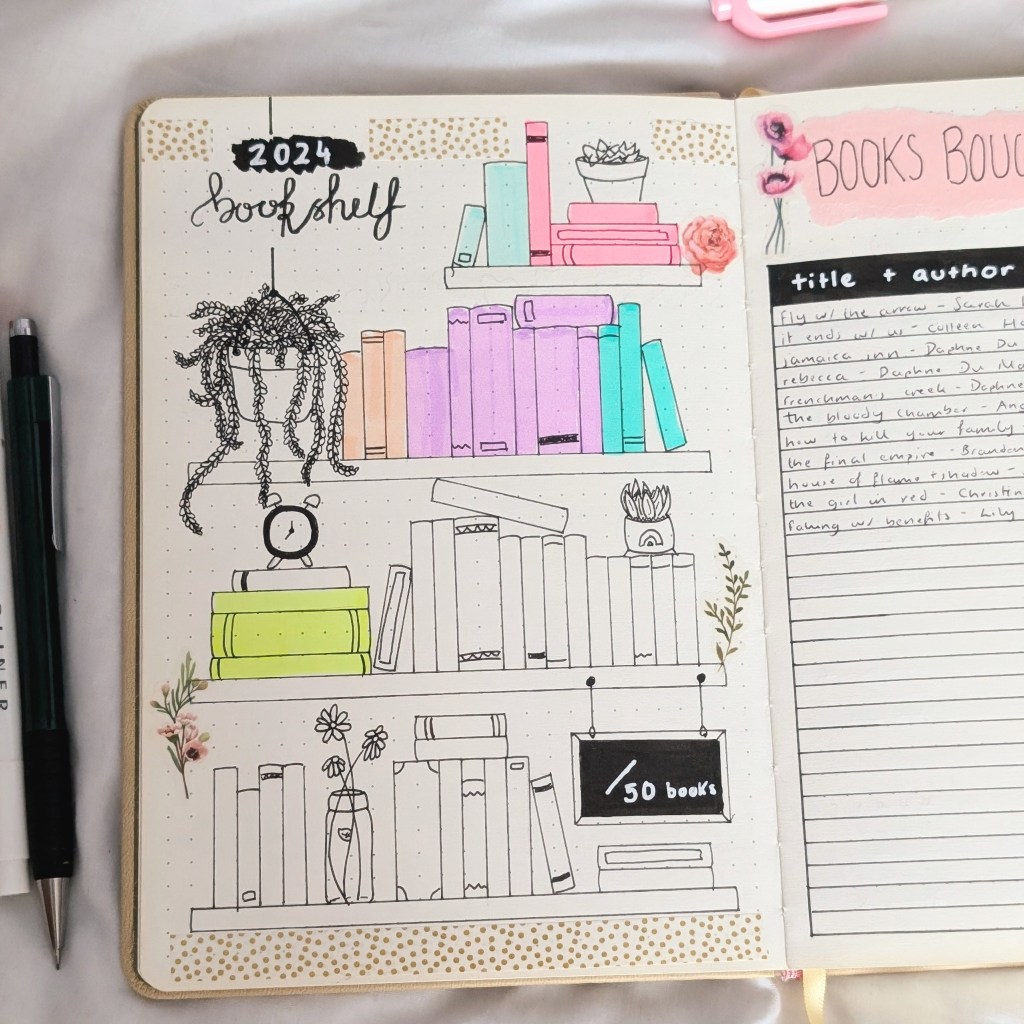 2024
bookshelf
/50 books
BOOKS BOUG
title + author
fly w/ the arrow - Sarah
it ends w/ us - Colleen Ho
jamaica inn - Daphne Du
rebecca - Daphne Du Ma
frenchmans creek - Daphne
the bloody chamber - Ang
how to kill your family
the final empire - Brandon
house of flame + shadow -
the girl in red - Christin
faking w/ benefits - Lily